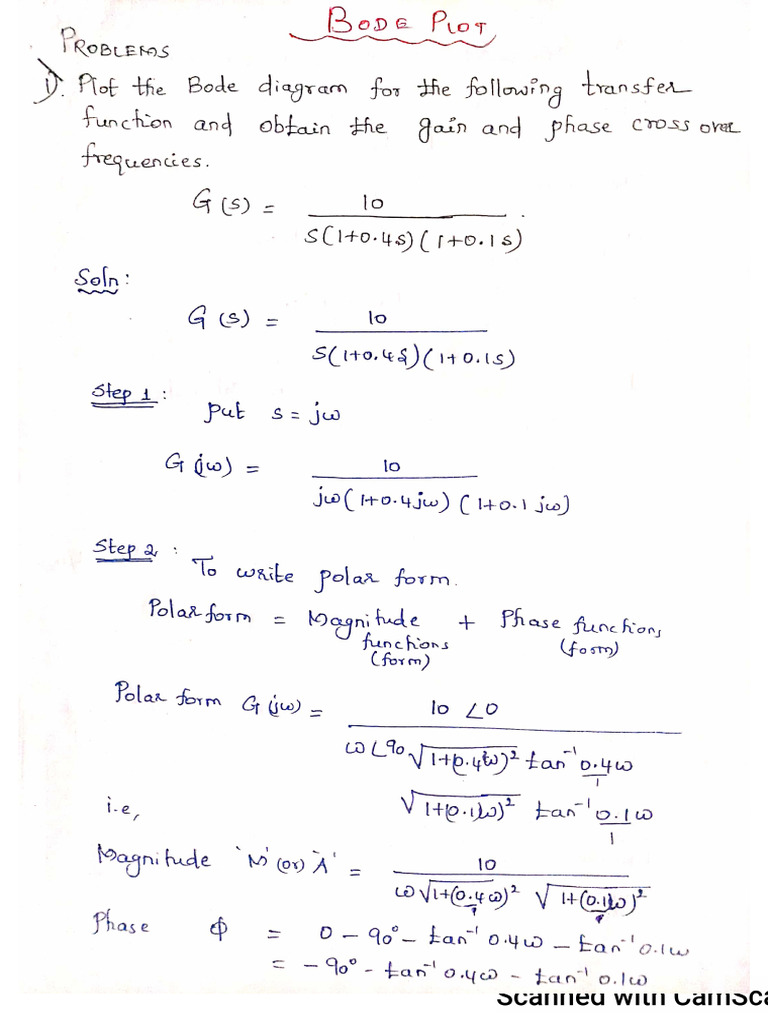 BODE PLOT
PROBLEMS
1). Plot the Bode diagram for the following transfer
function and obtain the gain and phase cross over
frequencies.
G(s) = 10 / S(1+0.4s)(1+0.1s)
Soln:
G(s) = 10 / S(1+0.4s)(1+0.1s)
Step 1:
put s = jω
G(jω) = 10 / jω(1+0.4jω)(1+0.1jω)
Step 2:
To write polar form.
Polar form = Magnitude functions (form) + Phase functions (form)
Polar form G(jω) = 10 ∠0 / ω∠90 √1+(0.4ω)² tan⁻¹ 0.4ω/1
√1+(0.1ω)² tan⁻¹ 0.1ω/1
i.e,
Magnitude 'M' (or) 'A' = 10 / ω√1+(0.4ω)² √1+(0.1ω)²
Phase ϕ = 0 - 90° - tan⁻¹ 0.4ω - tan⁻¹ 0.1ω
= -90° - tan⁻¹ 0.4ω - tan⁻¹ 0.1ω
Scanned with CamSca